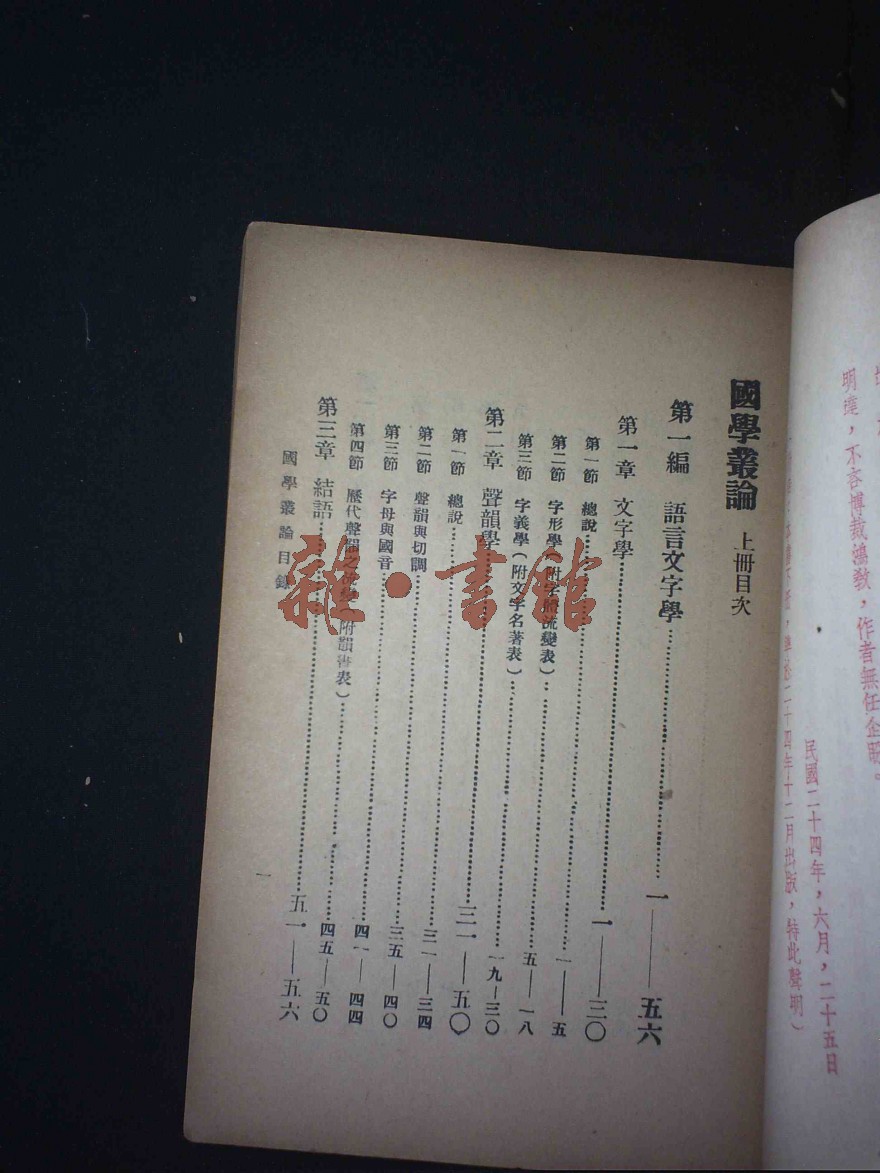 不吝博裁鴻教，作者無任企盼。
民國二十四年，六月，二十五日
二十四年十二月出版，特此聲明）
國學叢論 上冊目次
第一編 語言文字學……一——五六
第一章 文字學……一——三〇
第一節 總說……一——五
第二節 字形學（附字體流變表）……五—一八
第三節 字義學（附文字名著表）……一九—三〇
第二章 聲韻學……三一——五〇
第一節 總說……三一—三四
第二節 聲韻與切調……三五—四〇
第三節 字母與國音……四一—四四
第四節 歷代聲韻之流變（附韻書表）……四五—五〇
第三章 結語……五一——五六
國學叢論目錄
一
雜·書館